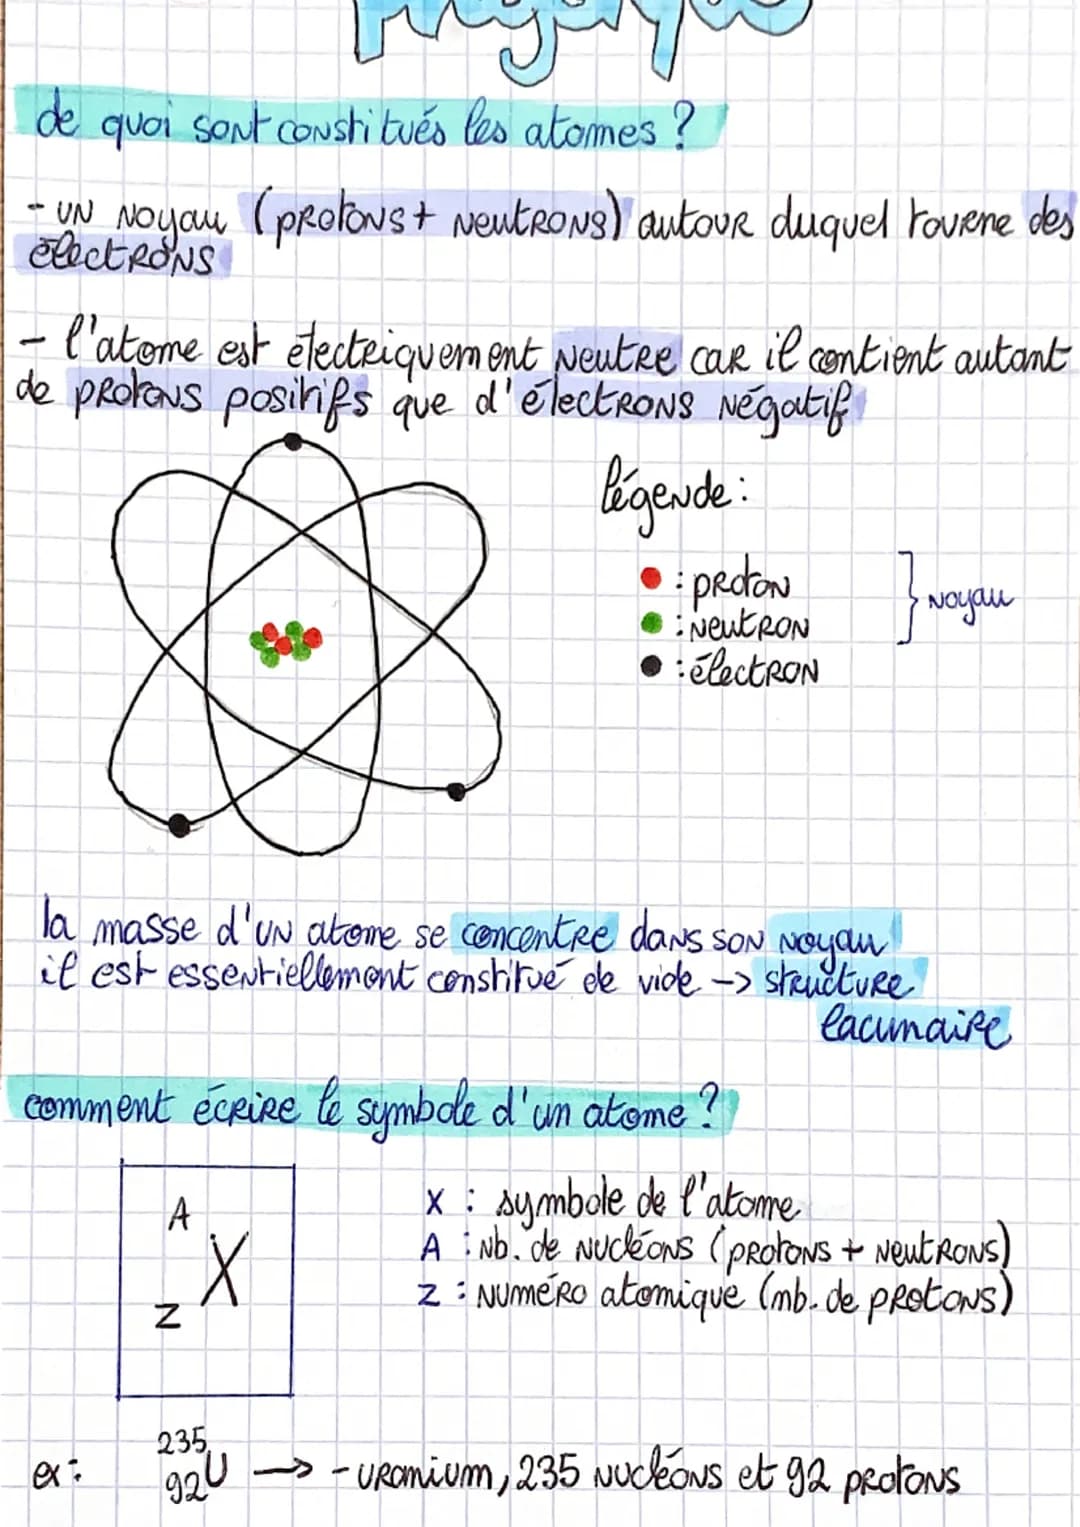 physique
de quoi sont constitués les atomes ?
- un noyau (protons + neutrons) autour duquel tourne des
électrons
- l'atome est électriquement neutre car il contient autant
de protons positifs que d'électrons négatif
légende :
: proton
: neutron
: électron
} noyau
la masse d'un atome se concentre dans son noyau
il est essentiellement constitué de vide -> structure
lacunaire
comment écrire le symbole d'un atome ?
A
X
Z
X : symbole de l'atome
A : nb. de nucléons (protons + neutrons)
Z : numéro atomique (nb. de protons)
235
ex : 92 U → - uranium, 235 nucléons et 92 protons